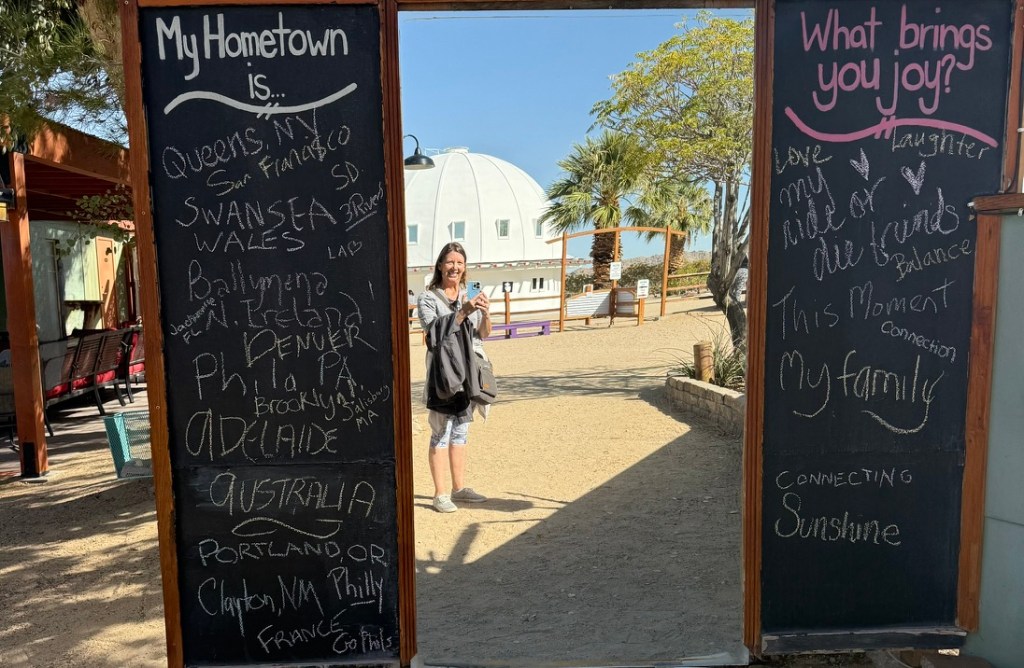 My Hometown
is...
Queens, NY
San Francisco
SD
SWANSEA
3 Rivers
WALES
LA
Ballymena
N. Ireland!
Jacksonville
FL
DENVER
Phila PA
Brooklyn!
Salisbury
MA
ADELAIDE
AUSTRALIA
PORTLAND, OR
Clayton, NM
Philly
FRANCE
Go Phils
What brings
you joy?
Laughter
Love
my
ride or
die friends
Balance
This Moment
Connection
My family
CONNECTING
Sunshine